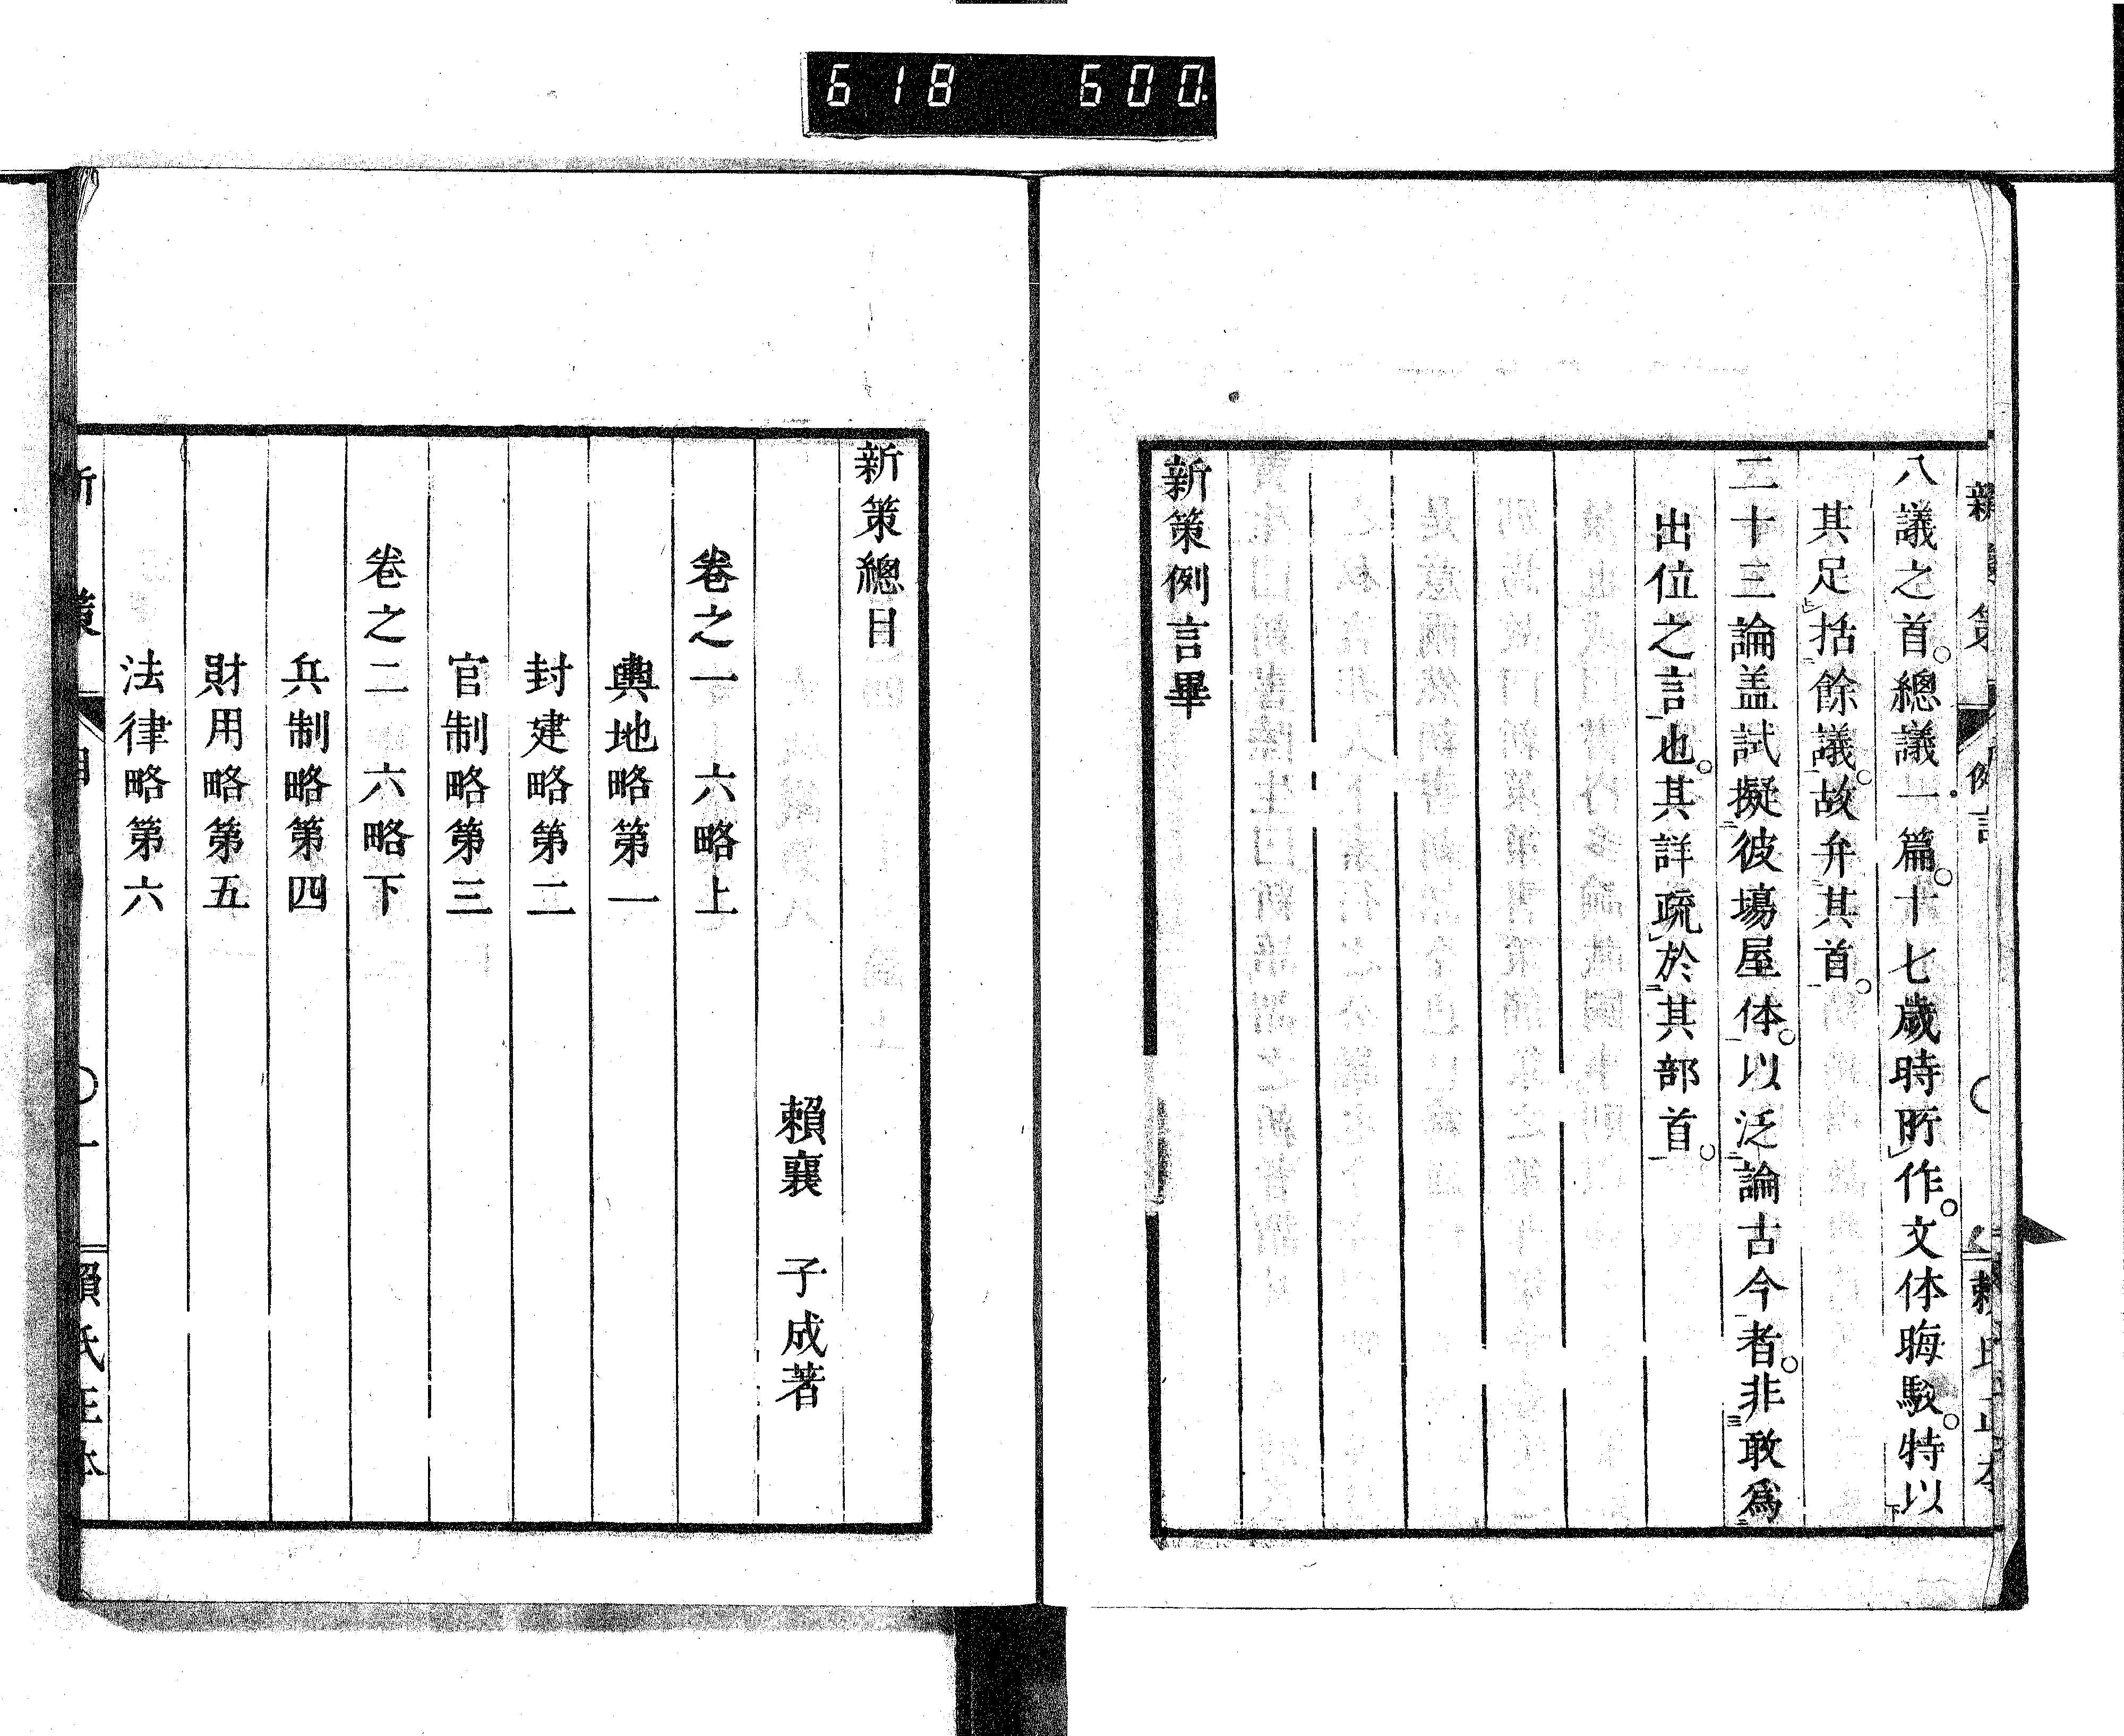 618 600.
八議之首。總議一篇。十七歲時所作。文体晦駁。特以
其足括餘議。故弁其首。
二十三論盖試擬彼場屋体。以泛論古今者。非敢爲
出位之言也。其詳疏於其部首。
新策例言畢
新策總目
賴襄 子成著
卷之一 六略上
輿地略第一
封建略第二
官制略第三
卷之二 六略下
兵制略第四
財用略第五
法律略第六